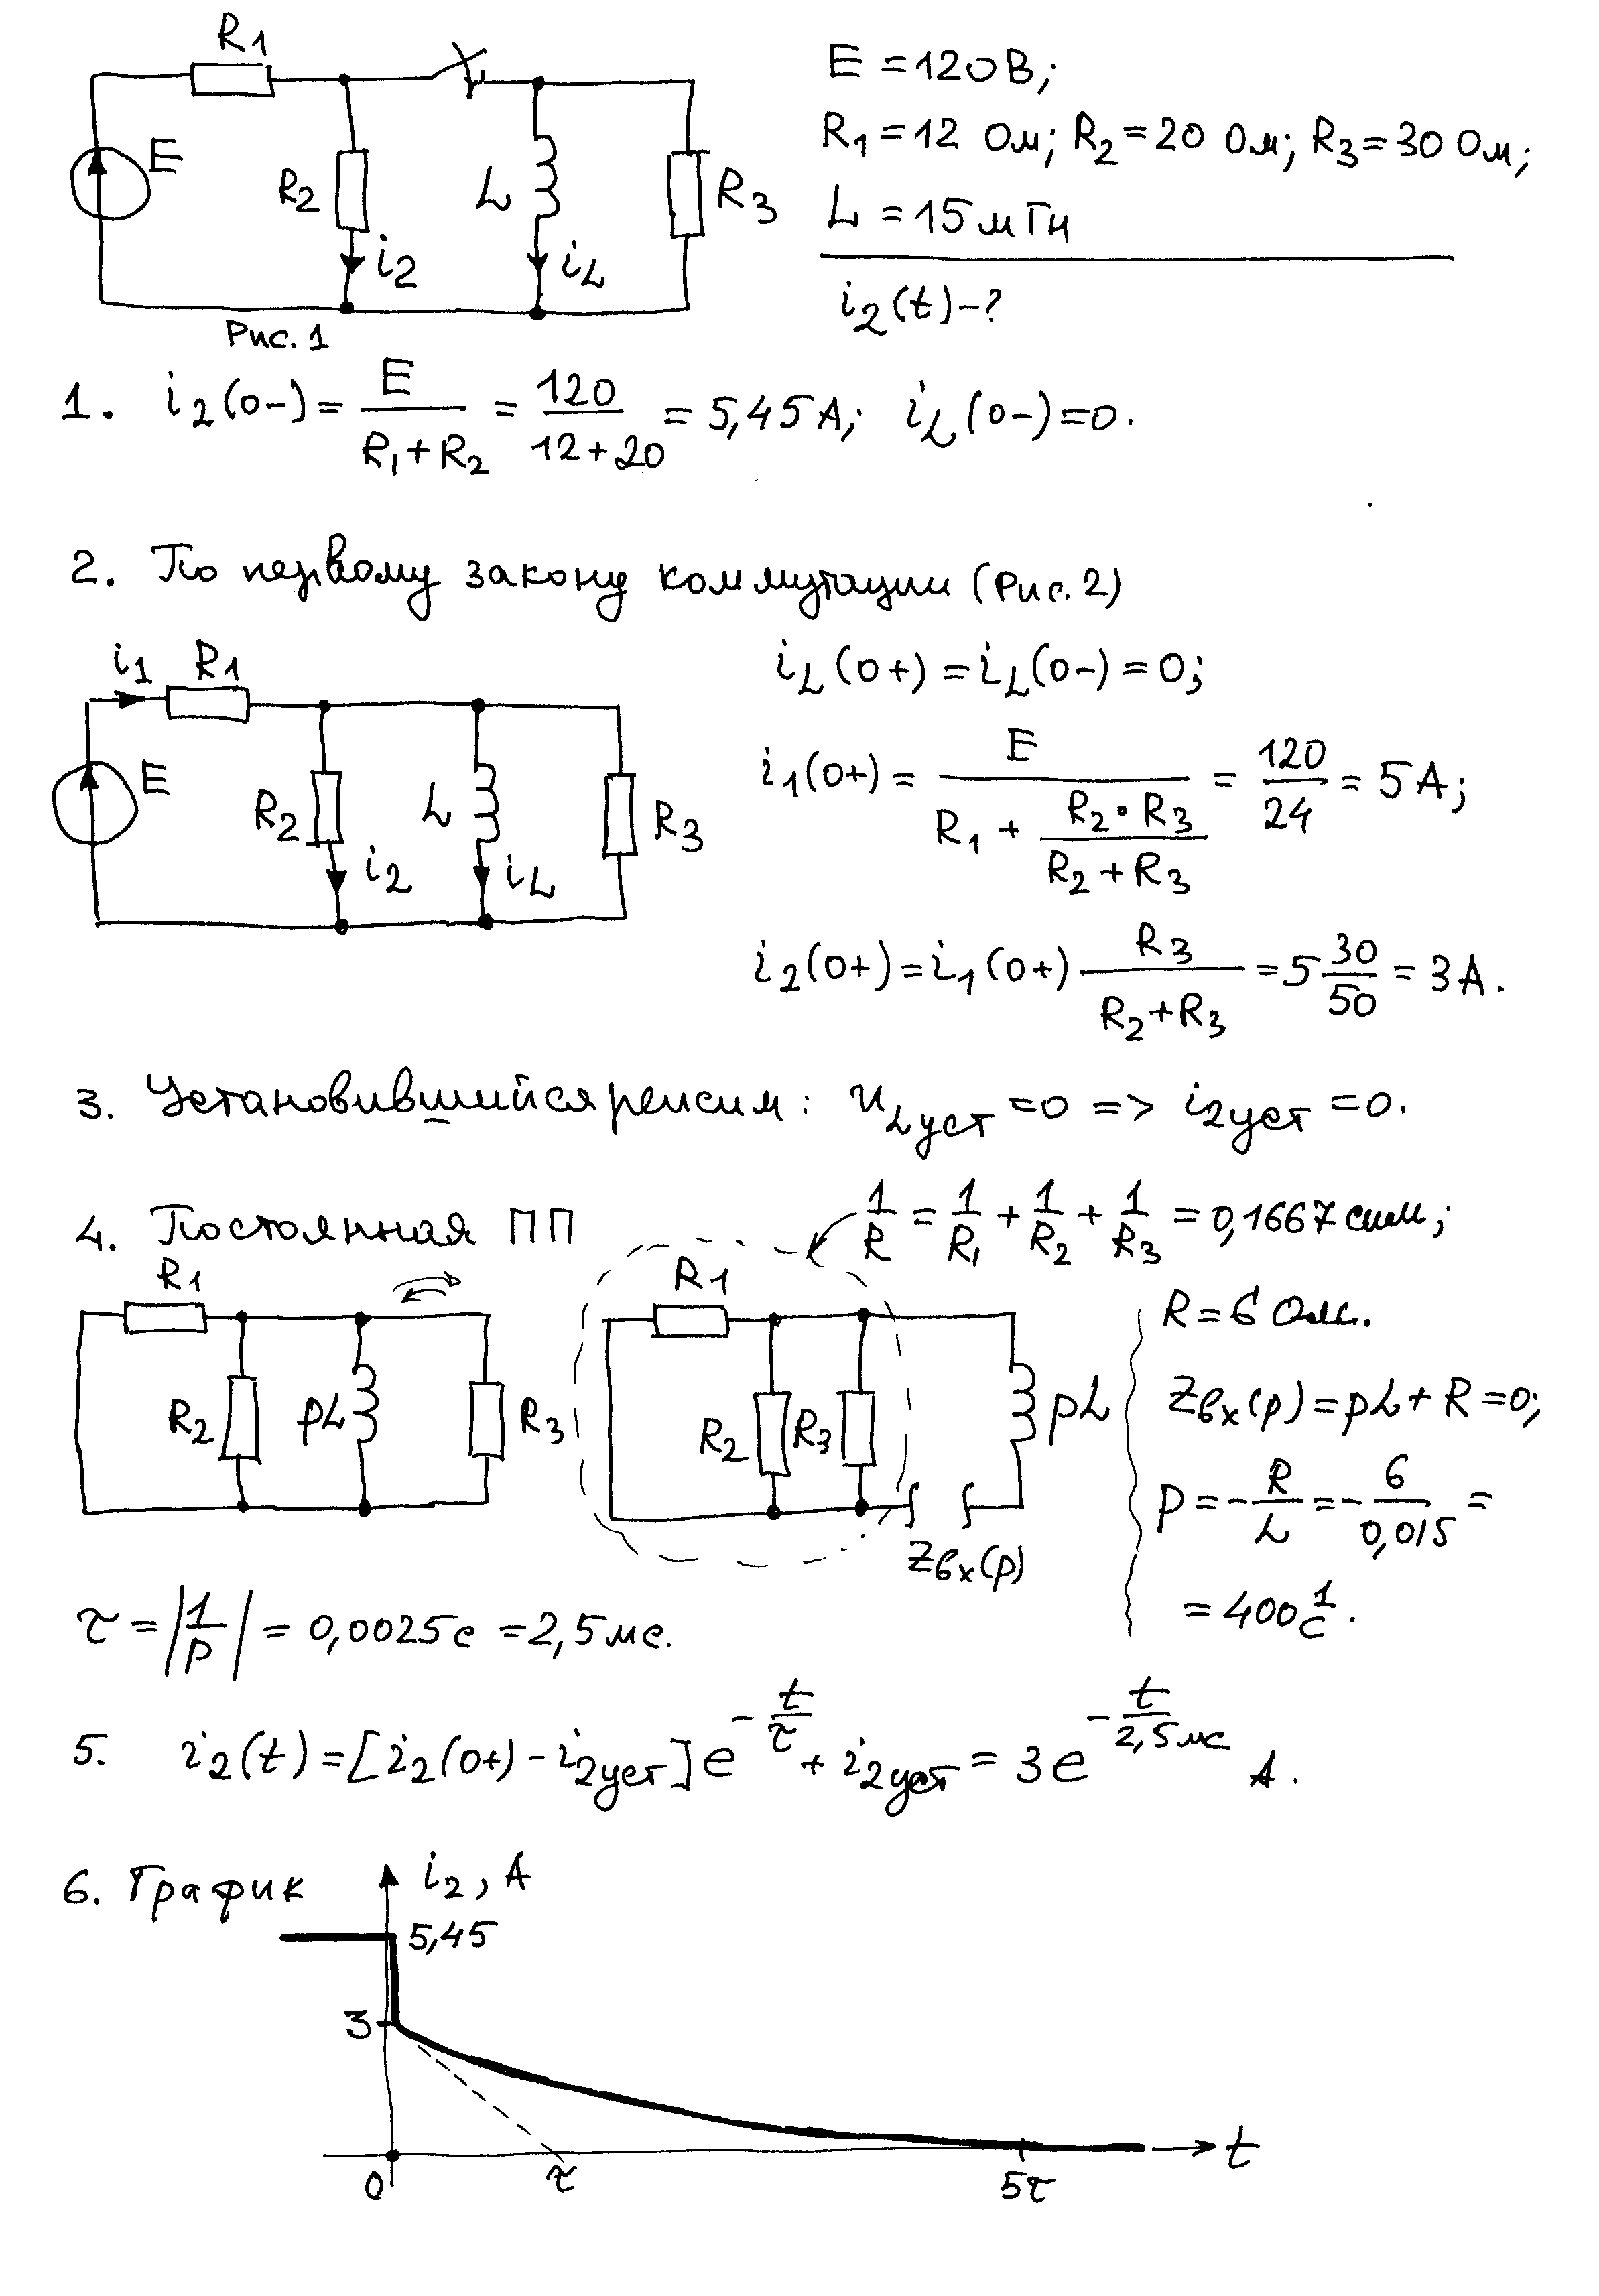 R1
E = 120 В;
E
R1 = 12 Ом; R2 = 20 Ом; R3 = 30 Ом;
R2 L R3
L = 15 мГн
i2 iL
i2(t) - ?
Рис. 1
1. i2(0-) = E / (R1 + R2) = 120 / (12 + 20) = 5,45 А; iL(0-) = 0.
2. По первому закону коммутации (Рис. 2)
i1 R1
iL(0+) = iL(0-) = 0;
E
R2 L R3
i2 iL
i1(0+) = E / (R1 + (R2 · R3) / (R2 + R3)) = 120 / 24 = 5 А;
i2(0+) = i1(0+) R3 / (R2 + R3) = 5 30/50 = 3 А.
3. Установившийся режим: uLуст = 0 => i2уст = 0.
4. Постоянная ПП
1/R = 1/R1 + 1/R2 + 1/R3 = 0,1667 сим;
R1
R2 pL R3
R1
R2 R3 pL
Zвх(p)
R = 6 Ом.
Zвх(p) = pL + R = 0;
p = - R/L = - 6 / 0,015 =
= 400 1/с.
τ = |1/p| = 0,0025 с = 2,5 мс.
5. i2(t) = [i2(0+) - i2уст] e^(-t/τ) + i2уст = 3 e^(-t/2,5мс) А.
6. График
i2, А
5,45
3
0 τ 5τ t